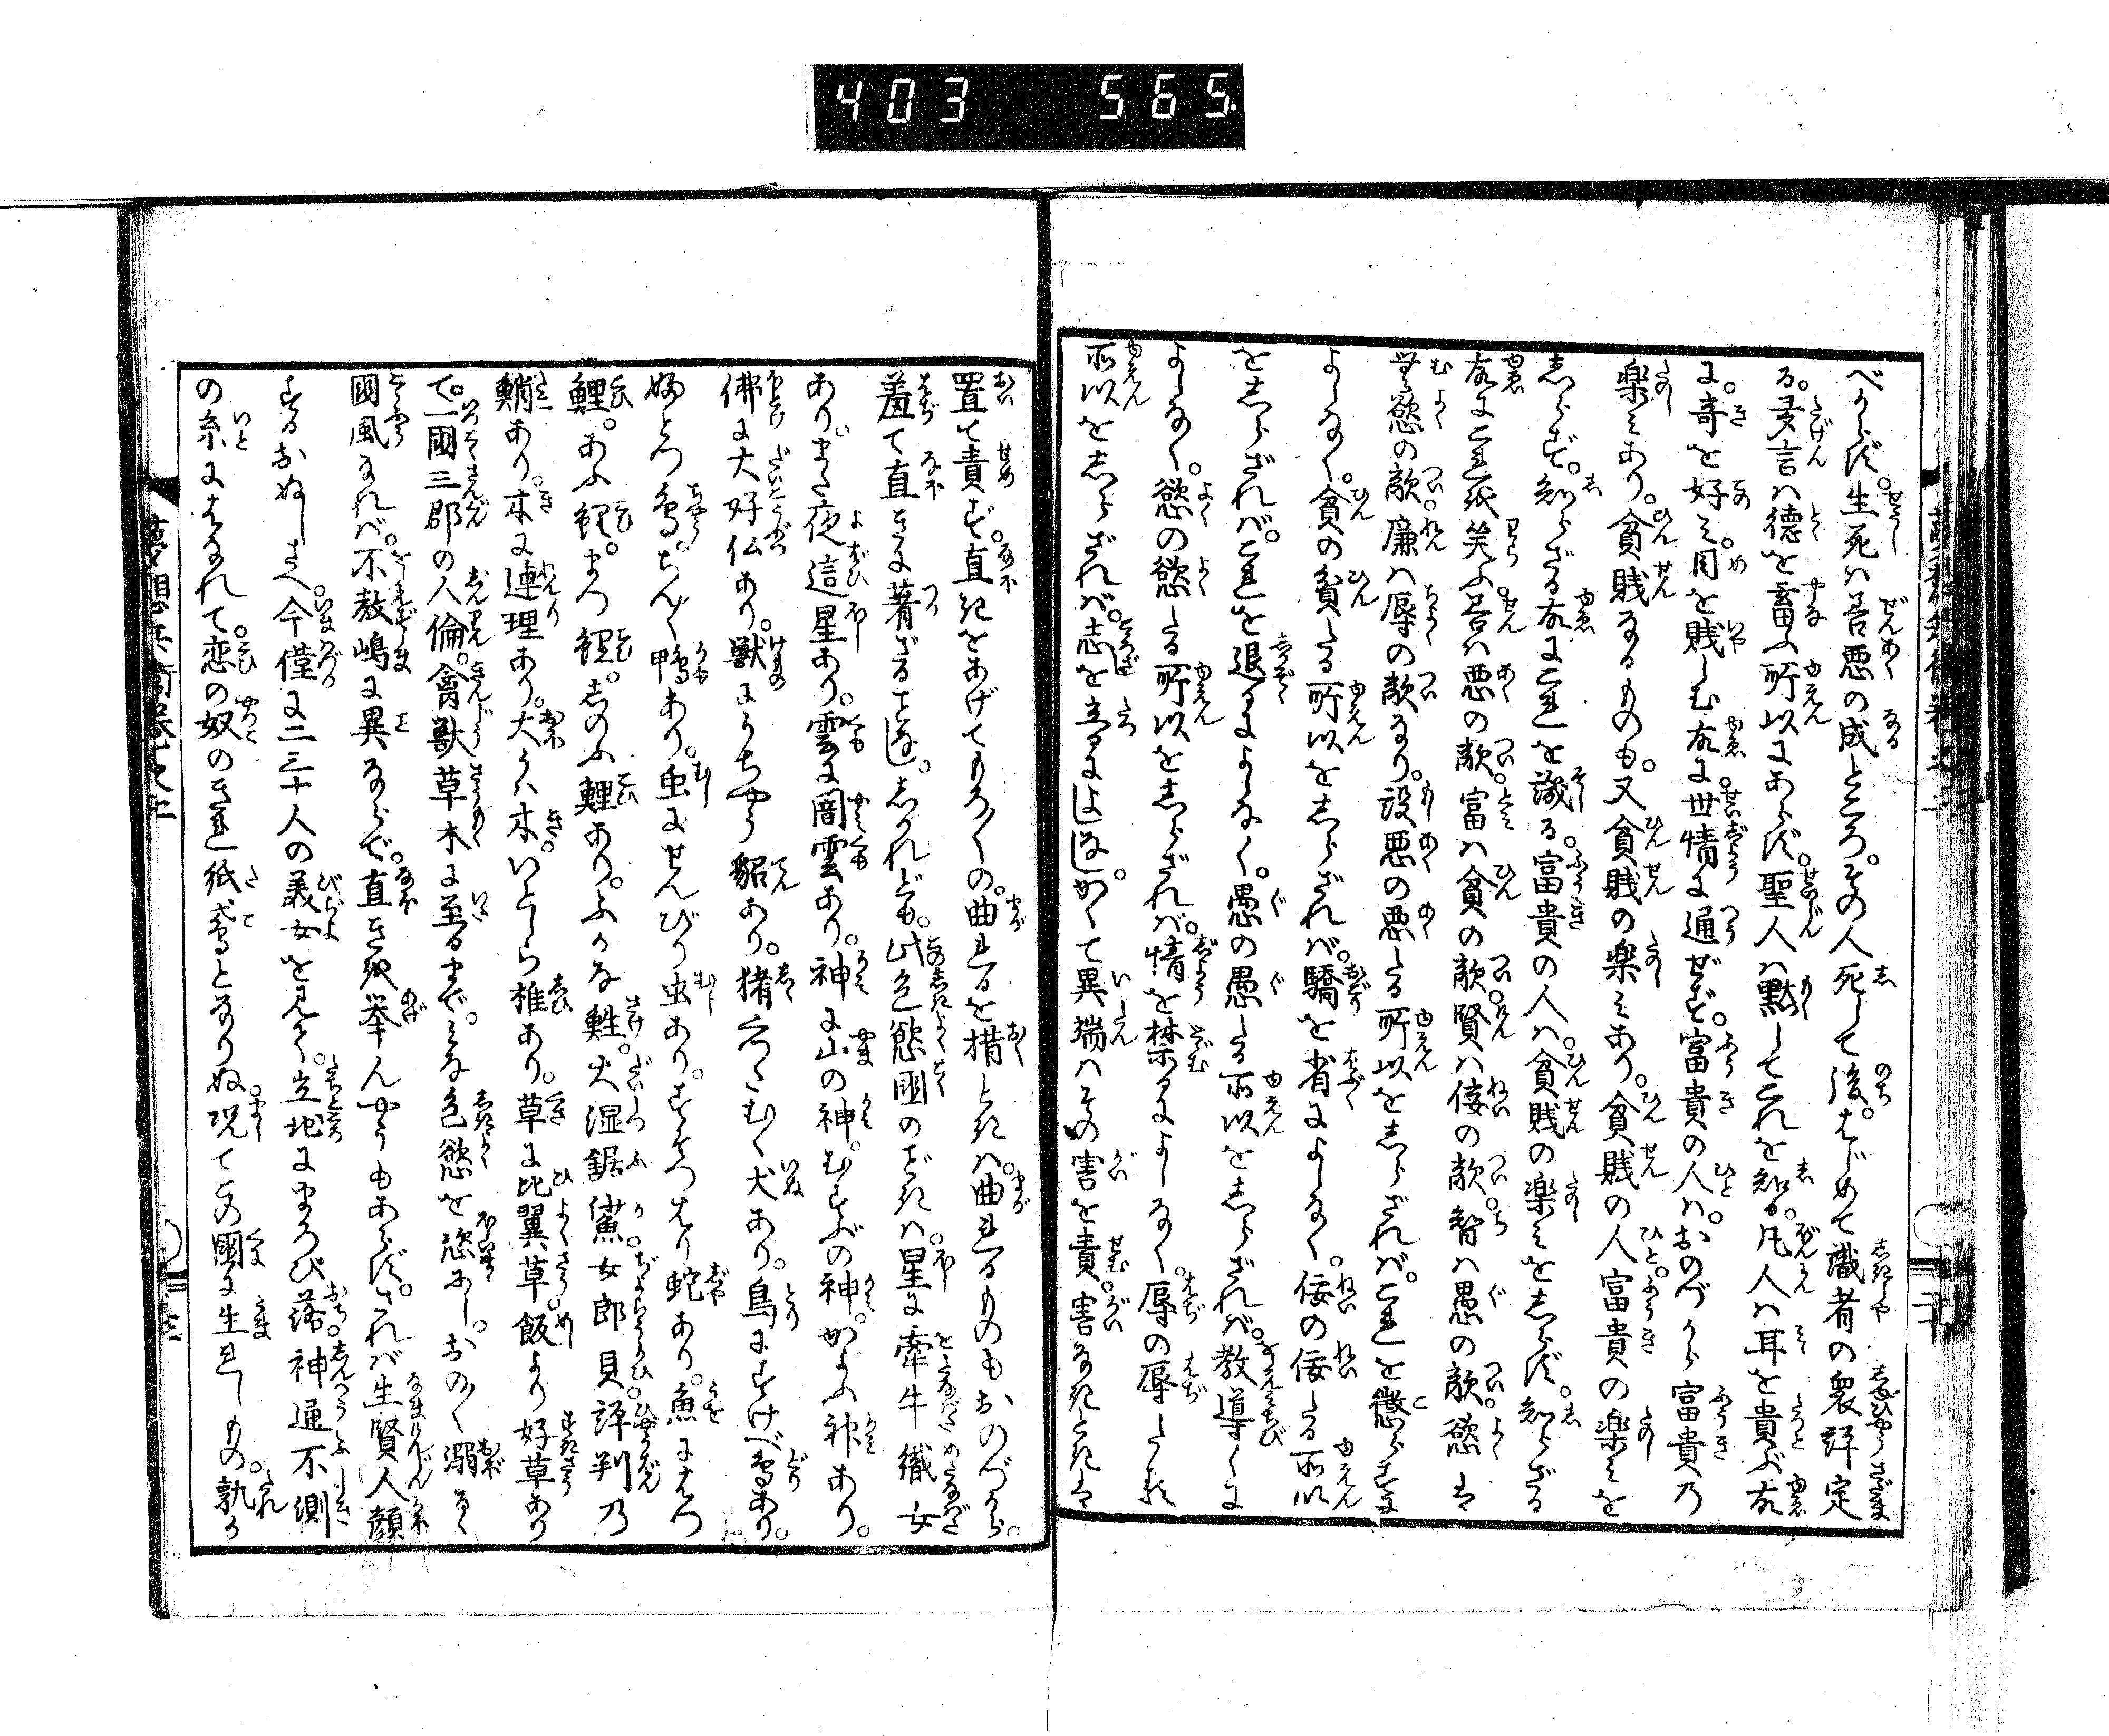 403 565.
べからず。生死は善悪の成ところ。その人死して後。はじめて識者の衆評定
る。多言は徳を畜ふ所以にあらず。聖人は黙してこれを知る。凡人は耳を貴ぶ故
に。奇を好み目を賎しむ故に。世情に通ぜず。富貴の人は。おのづから富貴の
楽みあり。貧賎なるものも。又貧賎の楽みあり。貧賎の人富貴の楽みを
しらず。知らざる故にこれを譏る。富貴の人は。貧賎の楽みをしらず。知らざる
故にこれを笑ふ。善は悪の敵。富は貧の敵。賢は佞の敵。智は愚の敵。慾は
無慾の敵。廉は辱の敵なり。設悪の悪たる所以をしらざれば。これを懲らすに
よしなく。貧の貧たる所以をしらざれば。驕を省によしなく。佞の佞たる所以
をしらざれば。これを退るによしなく。愚の愚たる所以をしらざれば。教導くに
よしなく。慾の慾たる所以をしらざれば。情を禁るによしなく。辱の辱たる
所以をしらざれば。志を立るによしなし。かくて異端はその害を責。害なきときは
置て責ず。直きをあげてもろ〳〵の。曲れるを措ときは。曲れるものもおのづから。
羞て直きに著ざるはなし。しかれども。此色慾国のごときは。星に牽牛織女
あり。また夜這星あり。雲に闇雲あり。神に山の神。むすぶの神。かよふ神あり。
佛に大好仏あり。獣にうちやう貂あり。猪 むく犬あり。鳥にすけべ鳥あり。
婦とつ鳥。ちん〳〵鴨あり。虫にせんびり虫あり。 蛇あり。魚にはつ
鯉。あふ鯉。まつ鯉。しのぶ鯉あり。ふかな鮏。大湿鋸鯊。女郎貝。評判の
鮹あり。木に連理あり。大かは木。いとしら椎あり。草に比翼草。飯より好草あり
て。一國三郡の人倫。禽獣草木に至るまで。みな色慾を恣にし。おの〳〵溺るゝ
國風なれば。不教嶋に異ならで。直きを挙んやうもあらず。されば生賢人顔
するおぬしさへ。今僅に二三十人の美女を見て。立地にまろび落。神通不測
の糸にはなれて。恋の奴のきれ紙鳶となりぬ。况てこの國に生れしもの。孰か